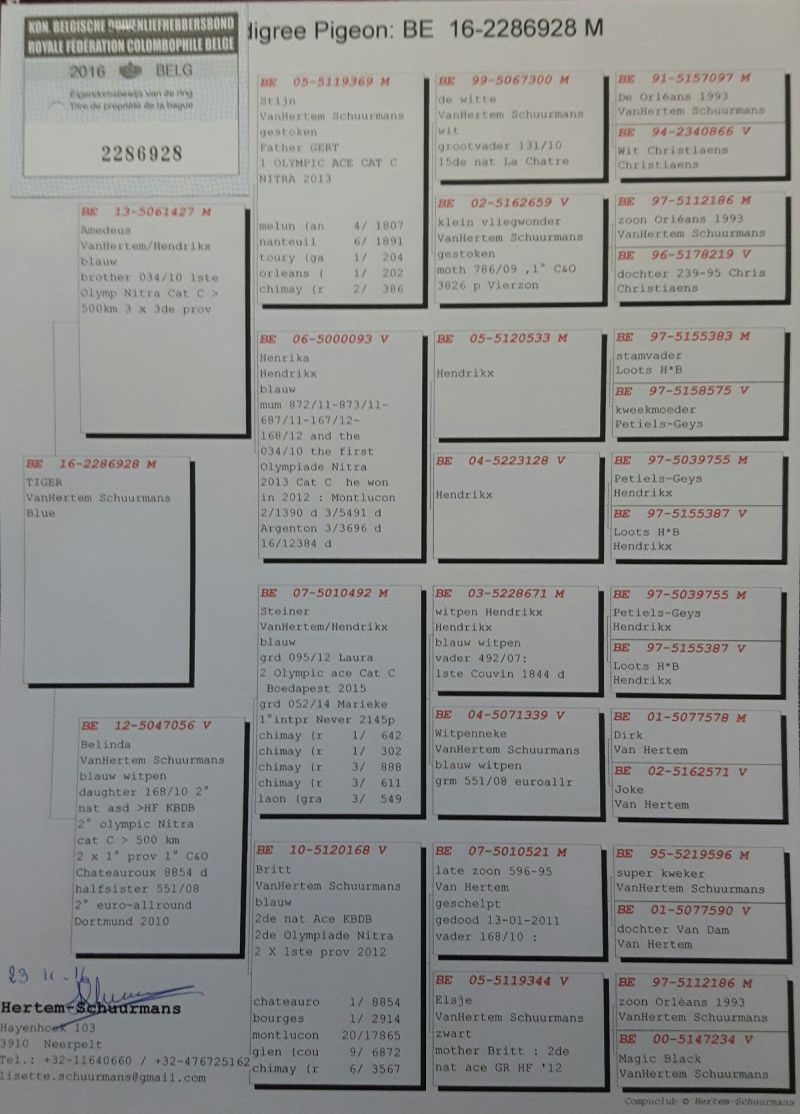 KON. BELGISCHE DUIVENLIEFHEBBERSBOND
ROYALE FÉDÉRATION COLOMBOPHILE BELGE
2016 BELG
Eigendomsbewijs van de ring
Titre de propriété de la bague
2286928
digree Pigeon: BE 16-2286928 M
BE 16-2286928 M
TIGER
VanHertem Schuurmans
Blue
BE 13-5061427 M
Amedeus
VanHertem/Hendrikx
blauw
brother 034/10 1ste
Olymp Nitra Cat C >
500km 3 x 3de prov
BE 12-5047056 V
Belinda
VanHertem Schuurmans
blauw witpen
daughter 168/10 2°
nat asd >HF KBDB
2° olympic Nitra
cat C > 500 km
2 x 1° prov 1° C&O
Chateauroux 8854 d
halfsister 551/08
2° euro-allround
Dortmund 2010
BE 05-5119369 M
Stijn
VanHertem Schuurmans
gestoken
Father GERT
1 OLYMPIC ACE CAT C
NITRA 2013
melun (an 4/ 1807
nanteuil 6/ 1891
toury (ga 1/ 204
orleans ( 1/ 202
chimay (r 2/ 386
BE 06-5000093 V
Henrika
Hendrikx
blauw
mum 872/11-873/11-
687/11-167/12-
168/12 and the
034/10 the first
Olympiade Nitra
2013 Cat C he won
in 2012 : Montlucon
2/1390 d 3/5491 d
Argenton 3/3696 d
16/12384 d
BE 07-5010492 M
Steiner
VanHertem/Hendrikx
blauw
grd 095/12 Laura
2 Olympic ace Cat C
Boedapest 2015
grd 052/14 Marieke
1°intpr Never 2145p
chimay (r 1/ 642
chimay (r 1/ 302
chimay (r 3/ 888
chimay (r 3/ 611
laon (gra 3/ 549
BE 10-5120168 V
Britt
VanHertem Schuurmans
blauw
2de nat Ace KBDB
2de Olympiade Nitra
2 X 1ste prov 2012
chateauro 1/ 8854
bourges 1/ 2914
montlucon 20/17865
gien (cou 9/ 6872
chimay (r 6/ 3567
BE 99-5067300 M
de witte
VanHertem Schuurmans
wit
grootvader 131/10
15de nat La Chatre
BE 02-5162659 V
klein vliegwonder
VanHertem Schuurmans
gestoken
moth 786/09 ,1° C&O
3826 p Vierzon
BE 05-5120533 M
Hendrikx
BE 04-5223128 V
Hendrikx
BE 03-5228671 M
witpen Hendrikx
Hendrikx
blauw witpen
vader 492/07:
1ste Couvin 1844 d
BE 04-5071339 V
Witpenneke
VanHertem Schuurmans
blauw witpen
grm 551/08 euroallr
BE 07-5010521 M
late zoon 596-95
Van Hertem
geschelpt
gedood 13-01-2011
vader 168/10 :
BE 05-5119344 V
Elsje
VanHertem Schuurmans
zwart
mother Britt : 2de
nat ace GR HF '12
BE 91-5157097 M
De Orléans 1993
VanHertem Schuurmans
BE 94-2340866 V
Wit Christiaens
Christiaens
BE 97-5112186 M
zoon Orléans 1993
VanHertem Schuurmans
BE 96-5178219 V
dochter 239-95 Chris
Christiaens
BE 97-5155383 M
stamvader
Loots H*B
BE 97-5158575 V
kweekmoeder
Petiels-Geys
BE 97-5039755 M
Petiels-Geys
Hendrikx
BE 97-5155387 V
Loots H*B
Hendrikx
BE 97-5039755 M
Petiels-Geys
Hendrikx
BE 97-5155387 V
Loots H*B
Hendrikx
BE 01-5077578 M
Dirk
Van Hertem
BE 02-5162571 V
Joke
Van Hertem
BE 95-5219596 M
super kweker
VanHertem Schuurmans
BE 01-5077590 V
dochter Van Dam
Van Hertem
BE 97-5112186 M
zoon Orléans 1993
VanHertem Schuurmans
BE 00-5147234 V
Magic Black
VanHertem Schuurmans
23 11 -16
Hertem-Schuurmans
Hayenhoek 103
3910 Neerpelt
Tel.: +32-11640660 / +32-476725162
lisette.schuurmans@gmail.com
Compuclub © Hertem-Schuurmans